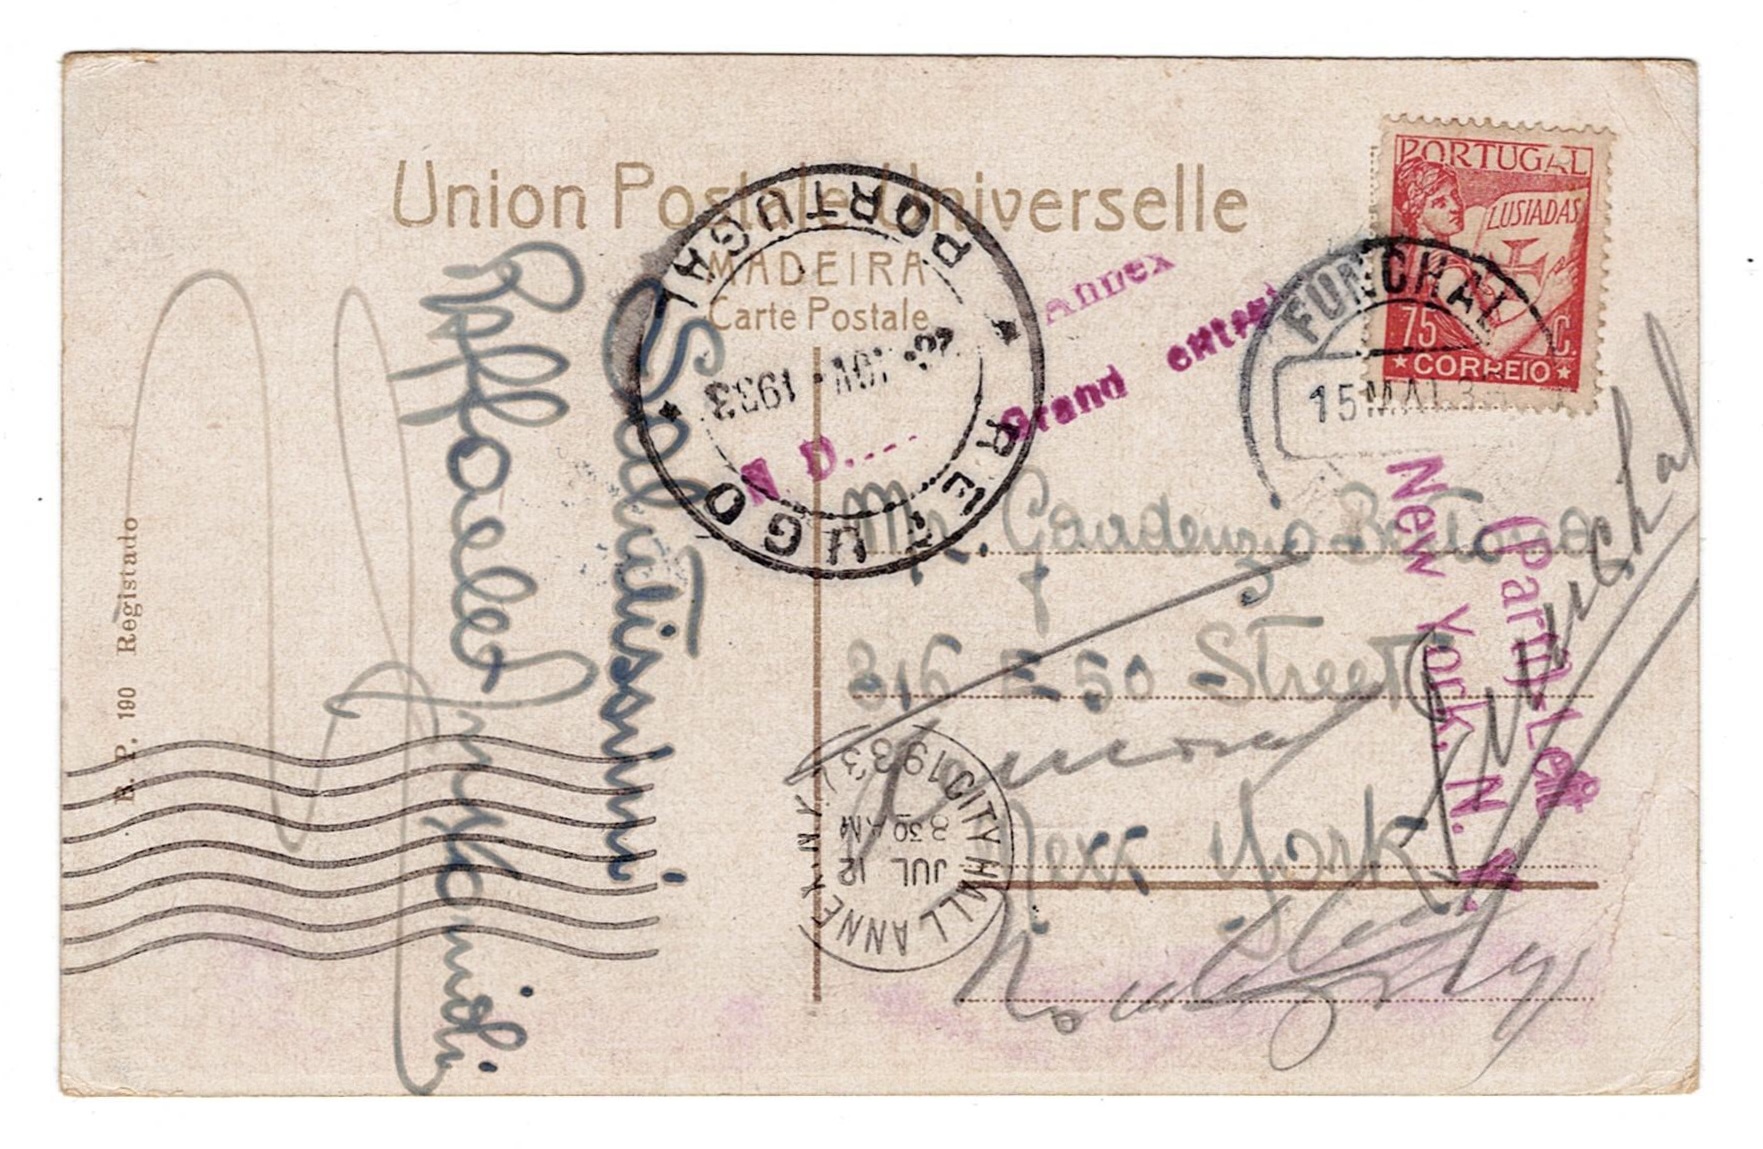 Union Postale Universelle
MADEIRA
Carte Postale
PORTUGAL
LUSIADAS
75 C.
CORREIO
FUNCHAL
15 MAI 33
REFUGO
PORTUGAL
NOV. 1933
Annex
Grand
N D....
Mr. Gaudenzio
316 E 50 Street
New York
New York, N. Y.
Left
Funchal
CITY HALL ANNEX N.Y.
JUL 12
8 30 AM
1933
Salutissimi
Raffaele
B. P. 190 Registado